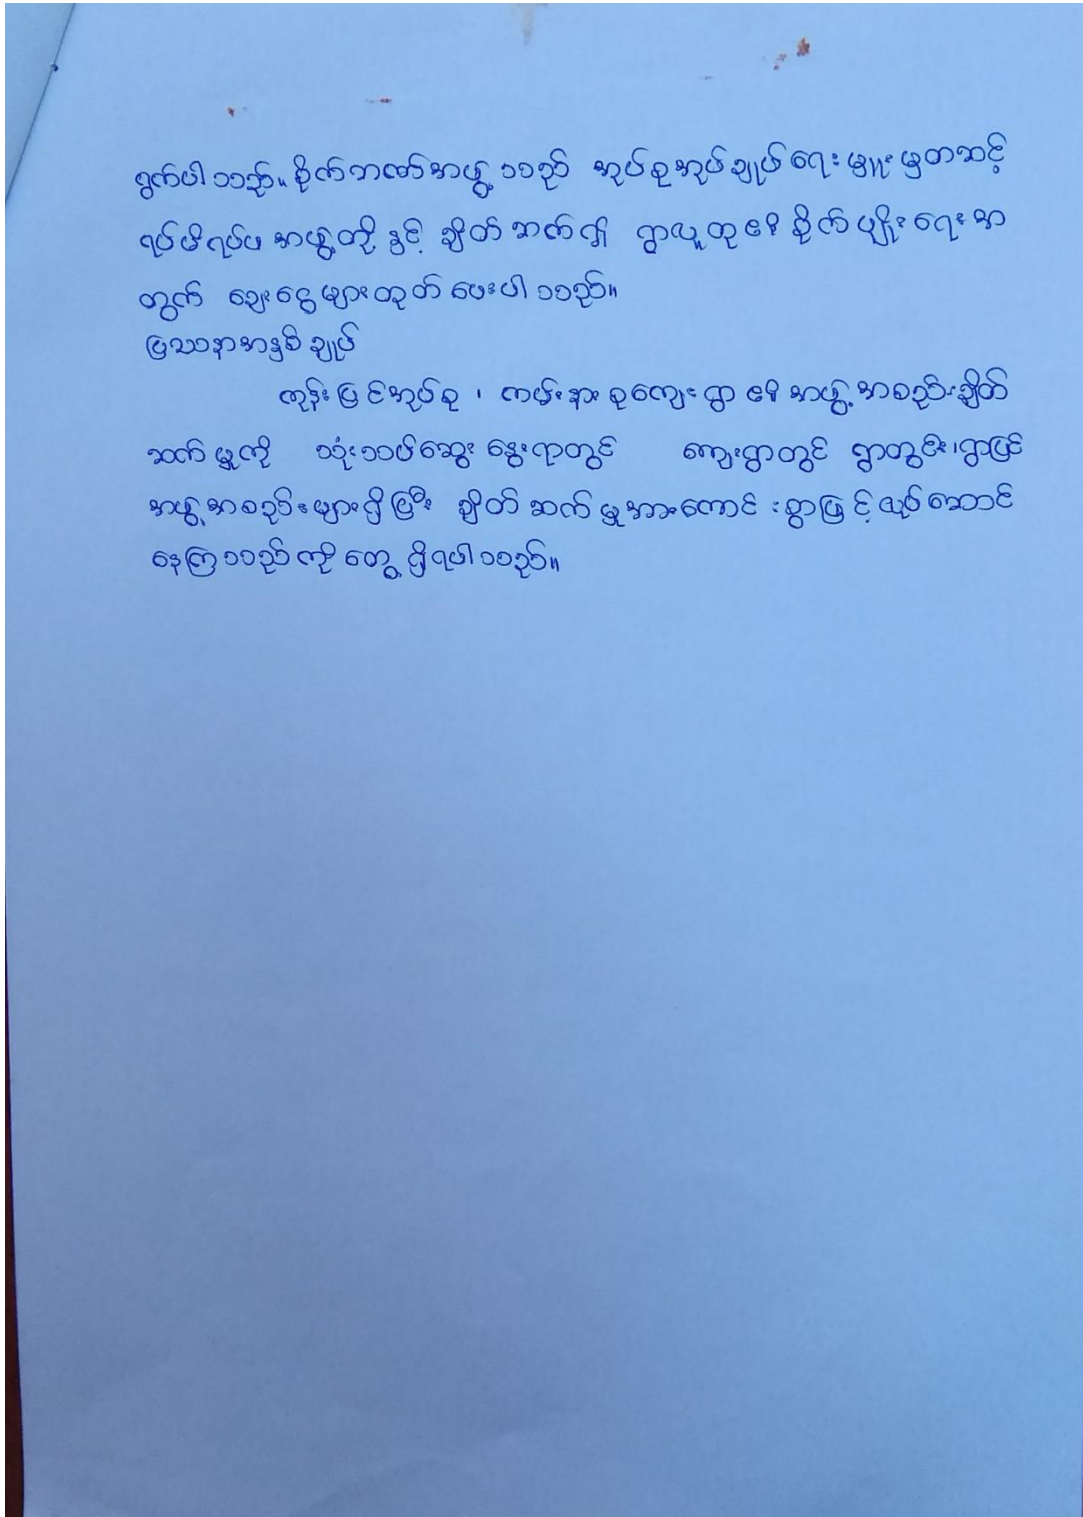 ရွက်ပါသည်။ စိုက်ဘဏ်အဖွဲ့သည် အုပ်စုအုပ်ချုပ်ရေးမှူးမှတဆင့်
ရပ်မိရပ်ဖ အဖွဲ့တို့နှင့် ချိတ်ဆက်၍ ရွာလူထု၏ စိုက်ပျိုးရေးအ
တွက် ချေးငွေများထုတ်ပေးပါသည်။
ပြဿနာအနှစ်ချုပ်
ကုန်းမြင့်အုပ်စု၊ ကမ်းနားစုကျေးရွာ၏ အဖွဲ့အစည်းချိတ်
ဆက်မှုကို သုံးသပ်ဆွေးနွေးရာတွင် ကျေးရွာတွင် ရွာတွင်း၊ရွာပြင်
အဖွဲ့အစည်းများရှိပြီး ချိတ်ဆက်မှုအားကောင်းစွာဖြင့်လုပ်ဆောင်
နေကြသည်ကို တွေ့ရှိရပါသည်။